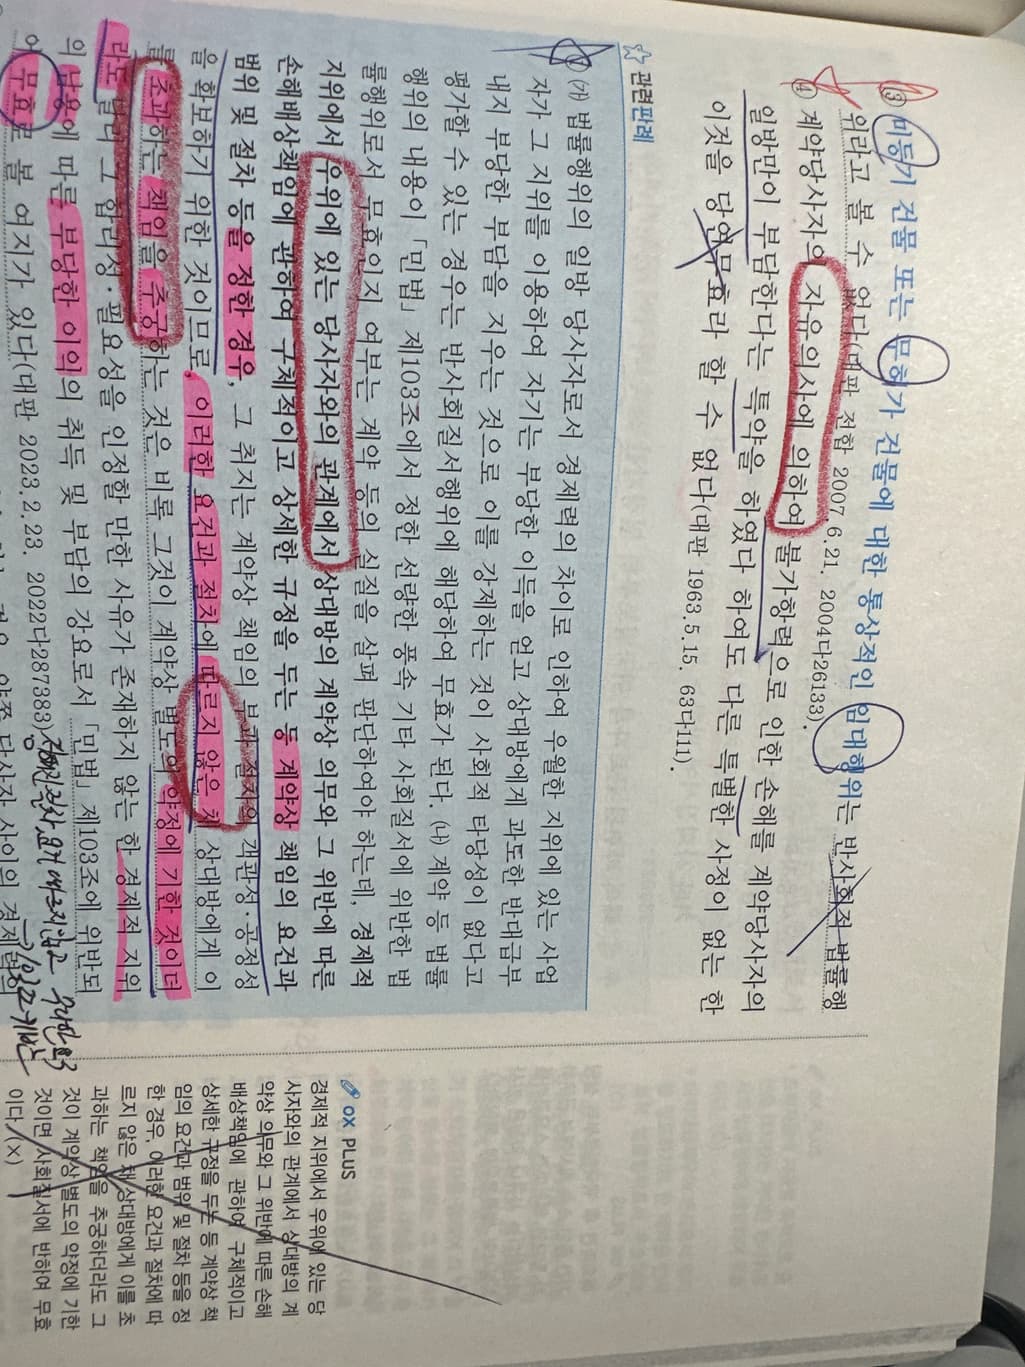 ③ 미등기 건물 또는 무허가 건물에 대한 통상적인 임대행위는 반사회적 법률행
위라고 볼 수 없다(대판 전합 2007.6.21. 2004다26133).
④ 계약당사자의 자유의사에 의하여 불가항력으로 인한 손해를 계약당사자의
일방만이 부담한다는 특약을 하였다 하여도 다른 특별한 사정이 없는 한
이것을 당연무효라 할 수 없다(대판 1963.5.15. 63다111).
관련판례
(가) 법률행위의 일방 당사자로서 경제력의 차이로 인하여 우월한 지위에 있는 사업
자가 그 지위를 이용하여 자기는 부당한 이득을 얻고 상대방에게 과도한 반대급부
내지 부당한 부담을 지우는 것으로 이를 강제하는 것이 사회적 타당성이 없다고
평가할 수 있는 경우는 반사회질서행위에 해당하여 무효가 된다. (나) 계약 등 법률
행위의 내용이 「민법」 제103조에서 정한 선량한 풍속 기타 사회질서에 위반한 법
률행위로서 무효인지 여부는 계약 등의 실질을 살펴 판단하여야 하는데, 경제적
지위에서 우위에 있는 당사자와의 관계에서 상대방의 계약상 의무와 그 위반에 따른
손해배상책임에 관하여 구체적이고 상세한 규정을 두는 등 계약상 책임의 요건과
범위 및 절차 등을 정한 경우, 그 취지는 계약상 책임의 부과 절차의 객관성·공정성
을 확보하기 위한 것이므로, 이러한 요건과 절차에 따르지 않은 채 상대방에게 이
를 초과하는 책임을 추궁하는 것은 비록 그것이 계약상 별도의 약정에 기한 것이더
라도 달리 그 합리성·필요성을 인정할 만한 사유가 존재하지 않는 한 경제적 지위
의 남용에 따른 부당한 이익의 취득 및 부담의 강요로서 「민법」 제103조에 위반되
어 무효로 볼 여지가 있다(대판 2023.2.23. 2022다287383)
양쪽 당사자 사이의 경제력의
OX PLUS
경제적 지위에서 우위에 있는 당
사자와의 관계에서 상대방의 계
약상 의무와 그 위반에 따른 손해
배상책임에 관하여 구체적이고
상세한 규정을 두는 등 계약상 책
임의 요건과 범위 및 절차 등을 정
한 경우, 이러한 요건과 절차에 따
르지 않은 채 상대방에게 이를 초
과하는 책임을 추궁하더라도 그
것이 계약상 별도의 약정에 기한
것이면 사회질서에 반하여 무효
이다. (X)